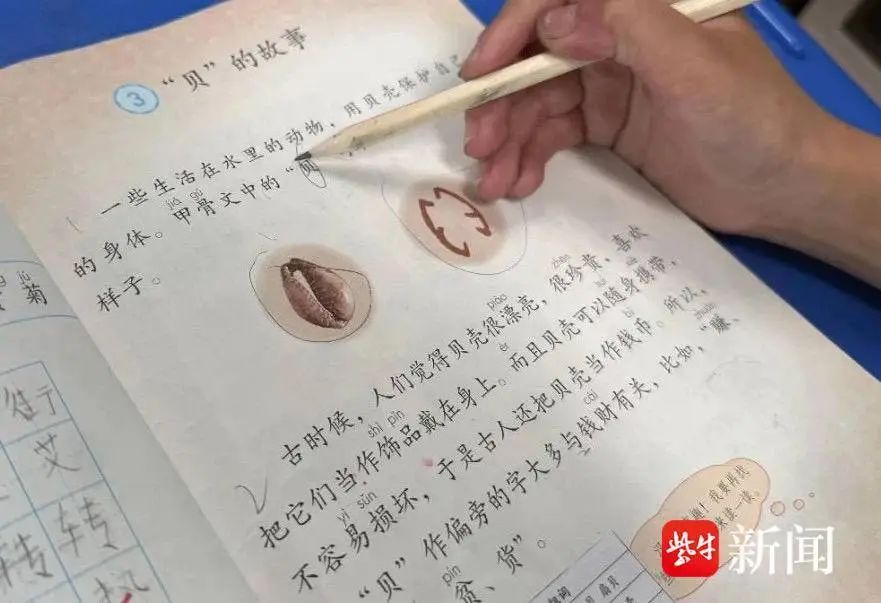 3 “贝”的故事
一些生活在水里的动物，用贝壳保护自己
jiǎ gǔ
的身体。甲骨文中的“贝
样子。
piào zhēn
古时候，人们觉得贝壳很漂亮，很珍贵，喜欢
shì pǐn
把它们当作饰品戴在身上。而且贝壳可以随身携带，
yì sǔn bì
不容易损坏，于是古人还把贝壳当作钱币。所以，
cái zhuàn
“贝”作偏旁的字大多与钱财有关，比如，“赚、
pín
贫、货”。
菊
衍
艾
转 转
我要再找
来读一读。
紫牛新闻